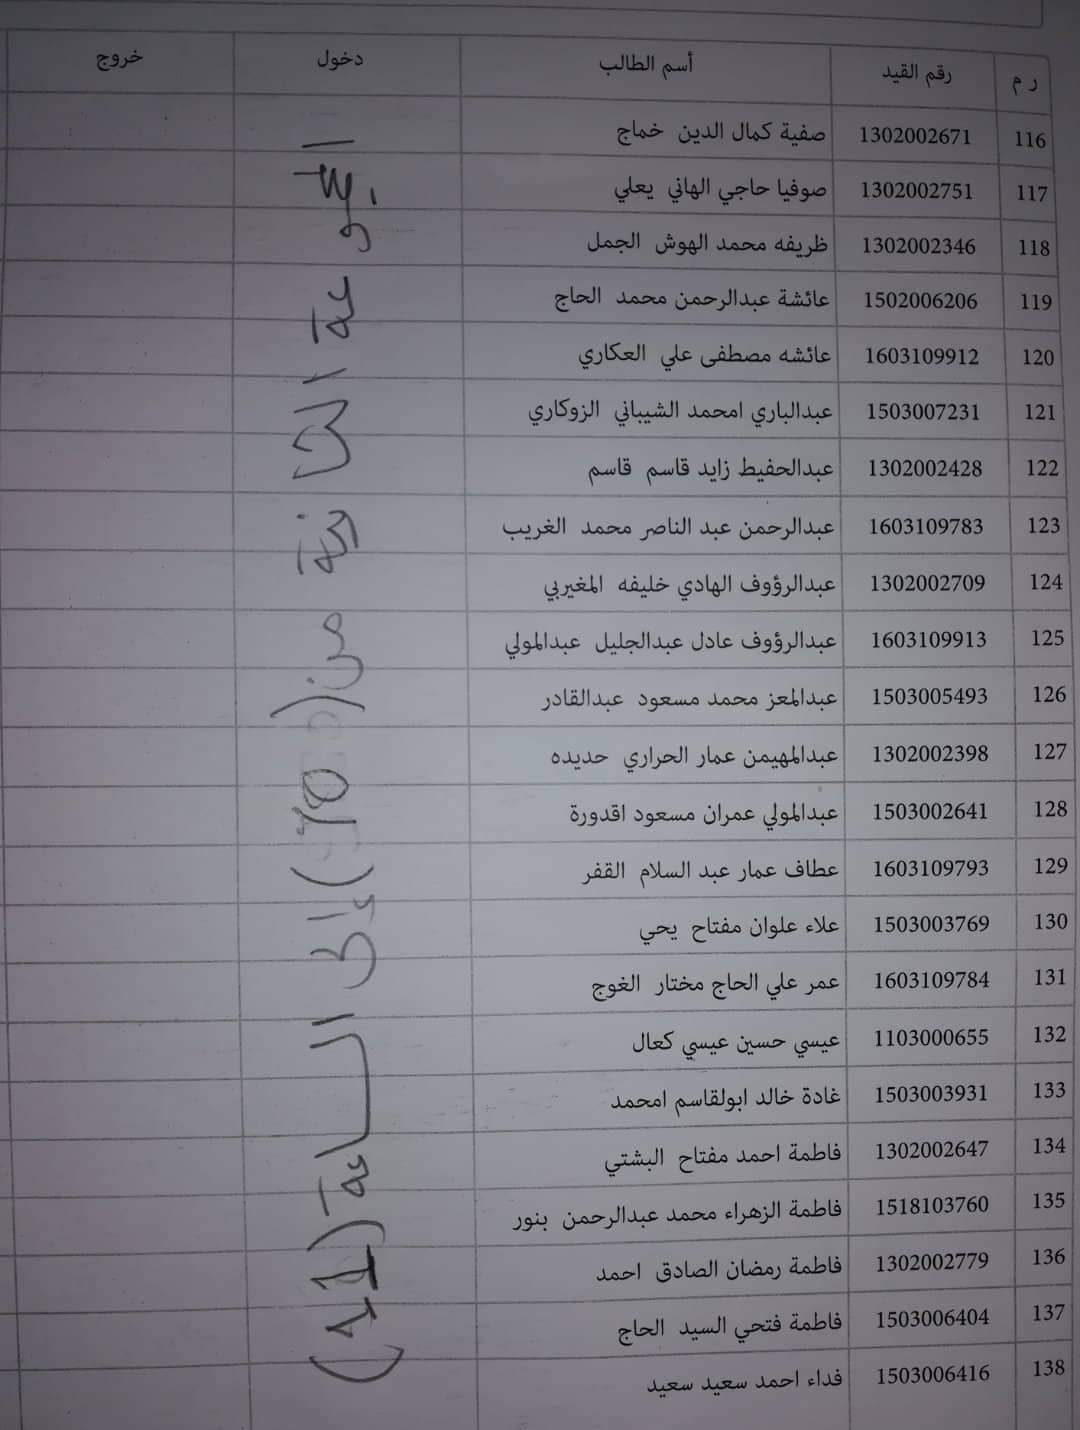 ر م رقم القيد أسم الطالب دخول خروج
116 1302002671 صفية كمال الدين خماج
117 1302002751 صوفيا حاجي الهاني يعلي
118 1302002346 ظريفه محمد الهوش الجمل
119 1502006206 عائشة عبدالرحمن محمد الحاج
120 1603109912 عائشه مصطفى علي العكاري
121 1503007231 عبدالباري امحمد الشيباني الزوكاري
122 1302002428 عبدالحفيط زايد قاسم قاسم
123 1603109783 عبدالرحمن عبد الناصر محمد الغريب
124 1302002709 عبدالرؤوف الهادي خليفه المغيربي
125 1603109913 عبدالرؤوف عادل عبدالجليل عبدالمولي
126 1503005493 عبدالمعز محمد مسعود عبدالقادر
127 1302002398 عبدالمهيمن عمار الحراري حديده
128 1503002641 عبدالمولي عمران مسعود اقدورة
129 1603109793 عطاف عمار عبد السلام القفر
130 1503003769 علاء علوان مفتاح يحي
131 1603109784 عمر علي الحاج مختار الغوج
132 1103000655 عيسي حسين عيسي كعال
133 1503003931 غادة خالد ابولقاسم امحمد
134 1302002647 فاطمة احمد مفتاح البشتي
135 1518103760 فاطمة الزهراء محمد عبدالرحمن بنور
136 1302002779 فاطمة رمضان الصادق احمد
137 1503006404 فاطمة فتحي السيد الحاج
138 1503006416 فداء احمد سعيد سعيد
من إلى الساعة (11)